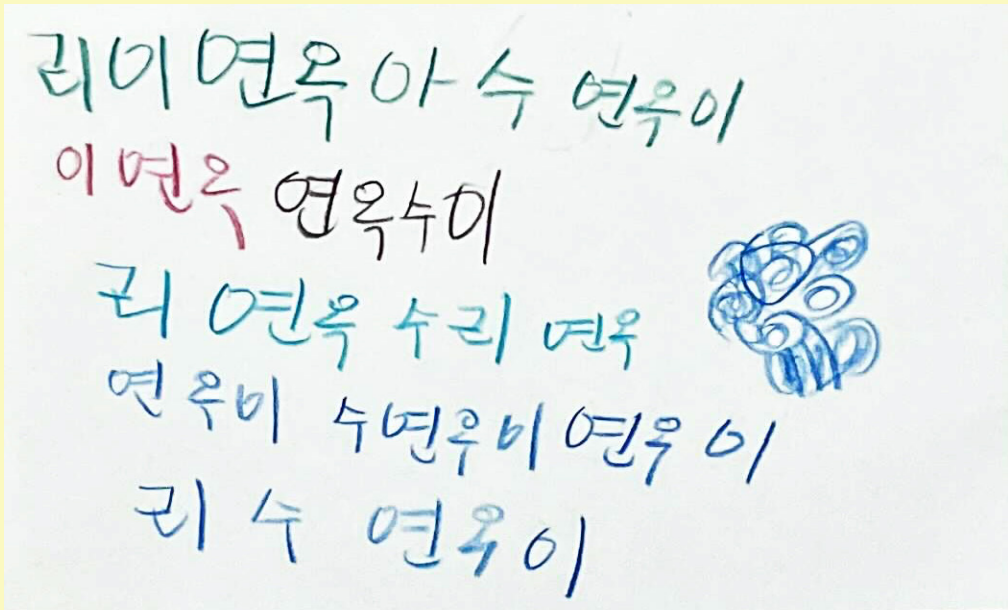 리이 연옥 아 수 연우이
이 연옥 연옥수이
리 연옥 수리 연옥
연우이 수연우이 연우 이
리 수 연옥이